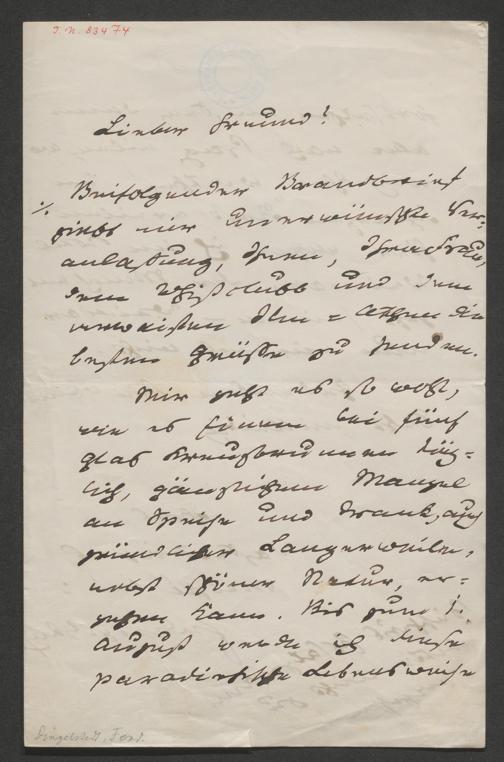 J. N. 83474
Lieber Freund!
Beifolgender Brandbrief
giebt mir Unerwünschte Ver-
anlassung, Ihnen, Ihrer Frau,
dem Whistclubb und dem
verwaisten Ilm = Athen die
besten Grüsse zu senden.
Mir geht es so wohl,
wie es Einem bei fünf
Glas Kreuzbrunnen täg-
lich, gänzlichem Mangel
an Speise und Trank, auch
gründlicher Langerweile,
nebst schöner Natur, er-
gehen kann. Bis zum 1.
August werde ich diese
paradiesische Lebensweise
Dingelstedt, Ferd.